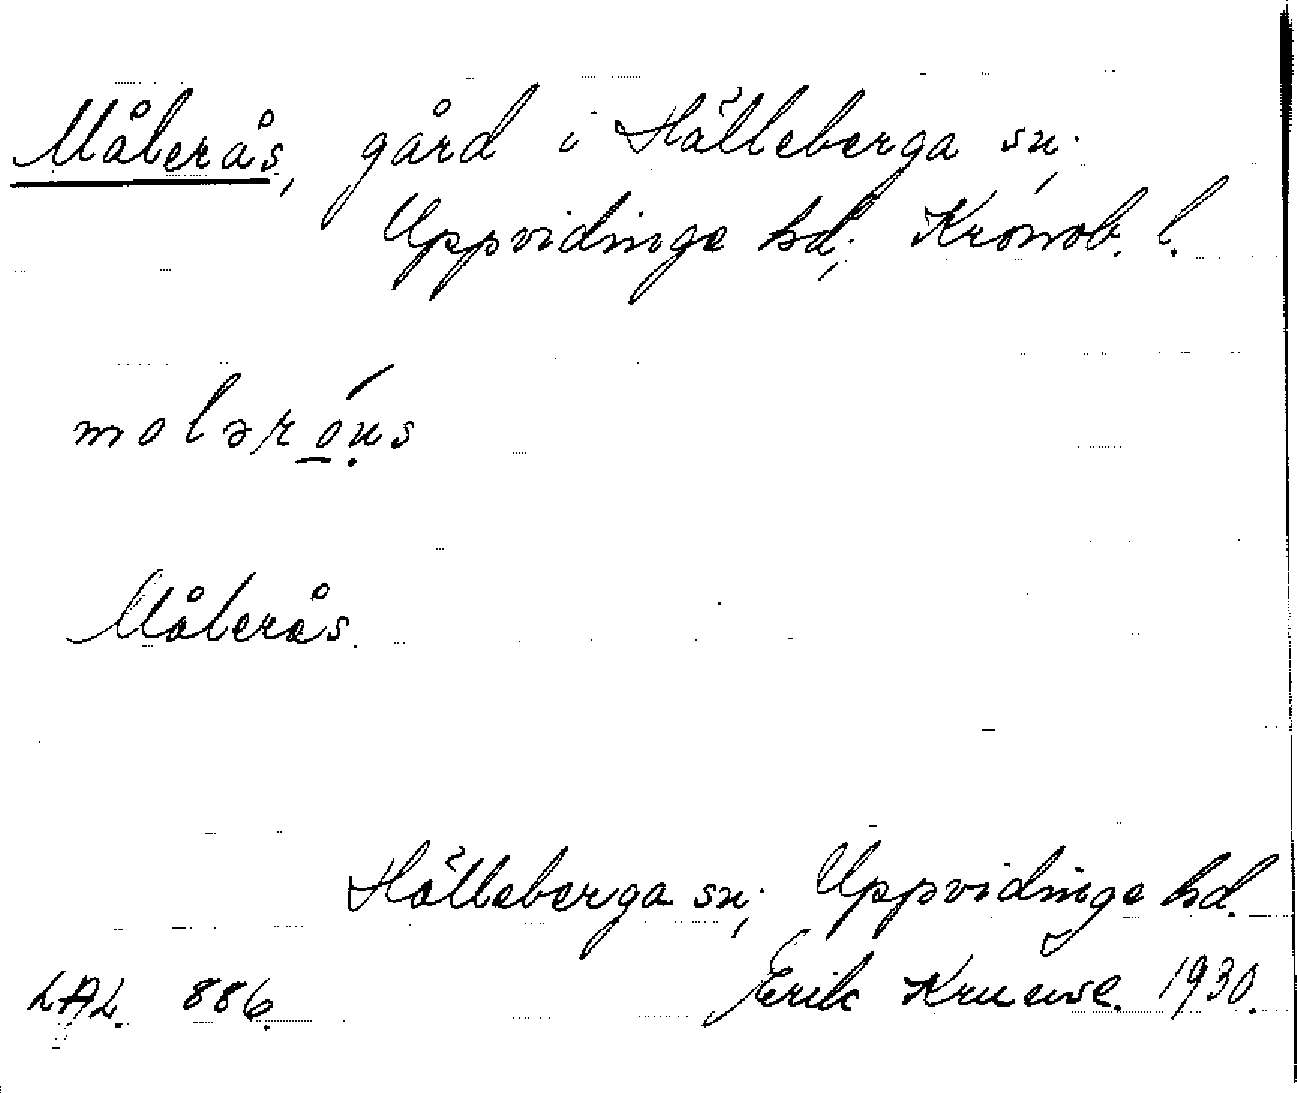 Målerås, gård i Hälleberga sn;
Uppvidinge hd; Kronob. l.
molərọ́u̇s
Målerås.
Hälleberga sn; Uppvidinge hd.
LAL. 886. Erik Kruuse. 1930.